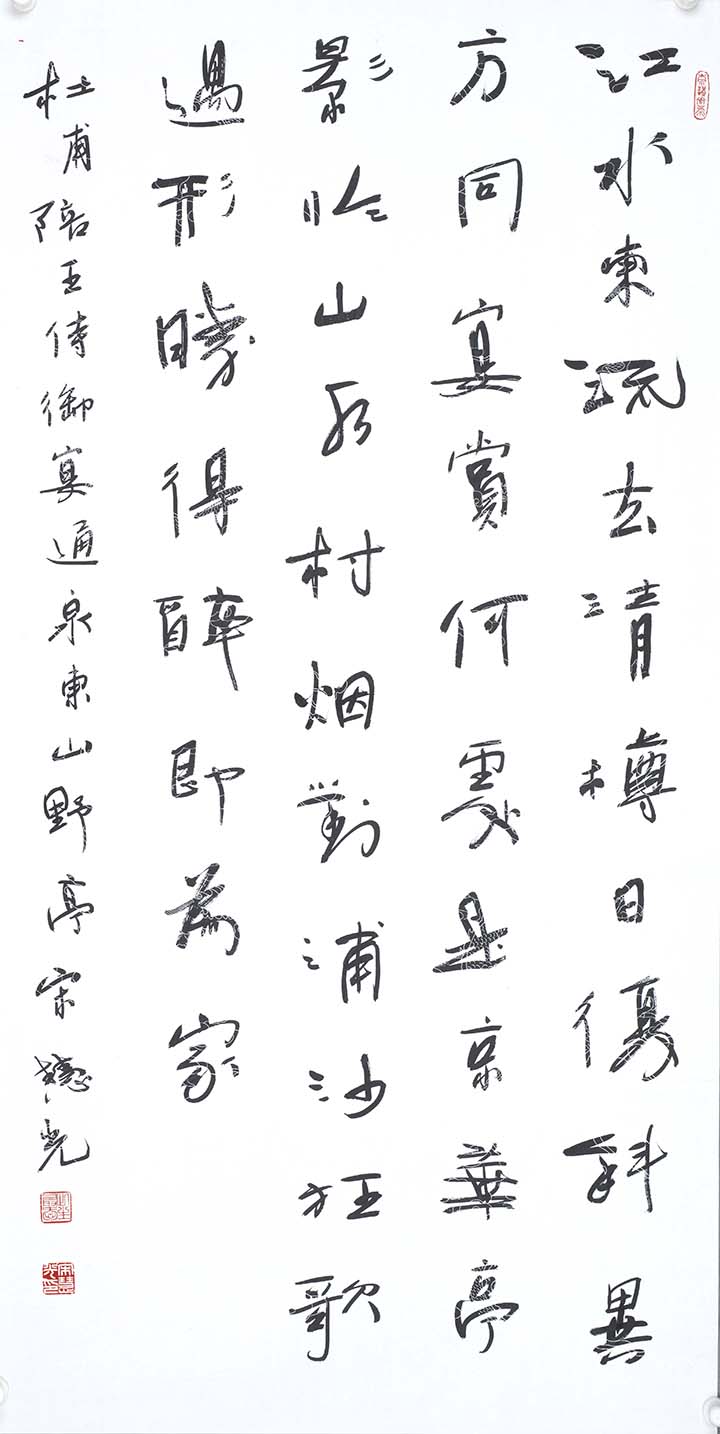 江水東流去清樽日復斜異
方同宴賞何處是京華亭
影臨山水村烟對浦沙狂歌
過形勝得醉即為家
杜甫陪王侍御宴通泉東山野亭宋光